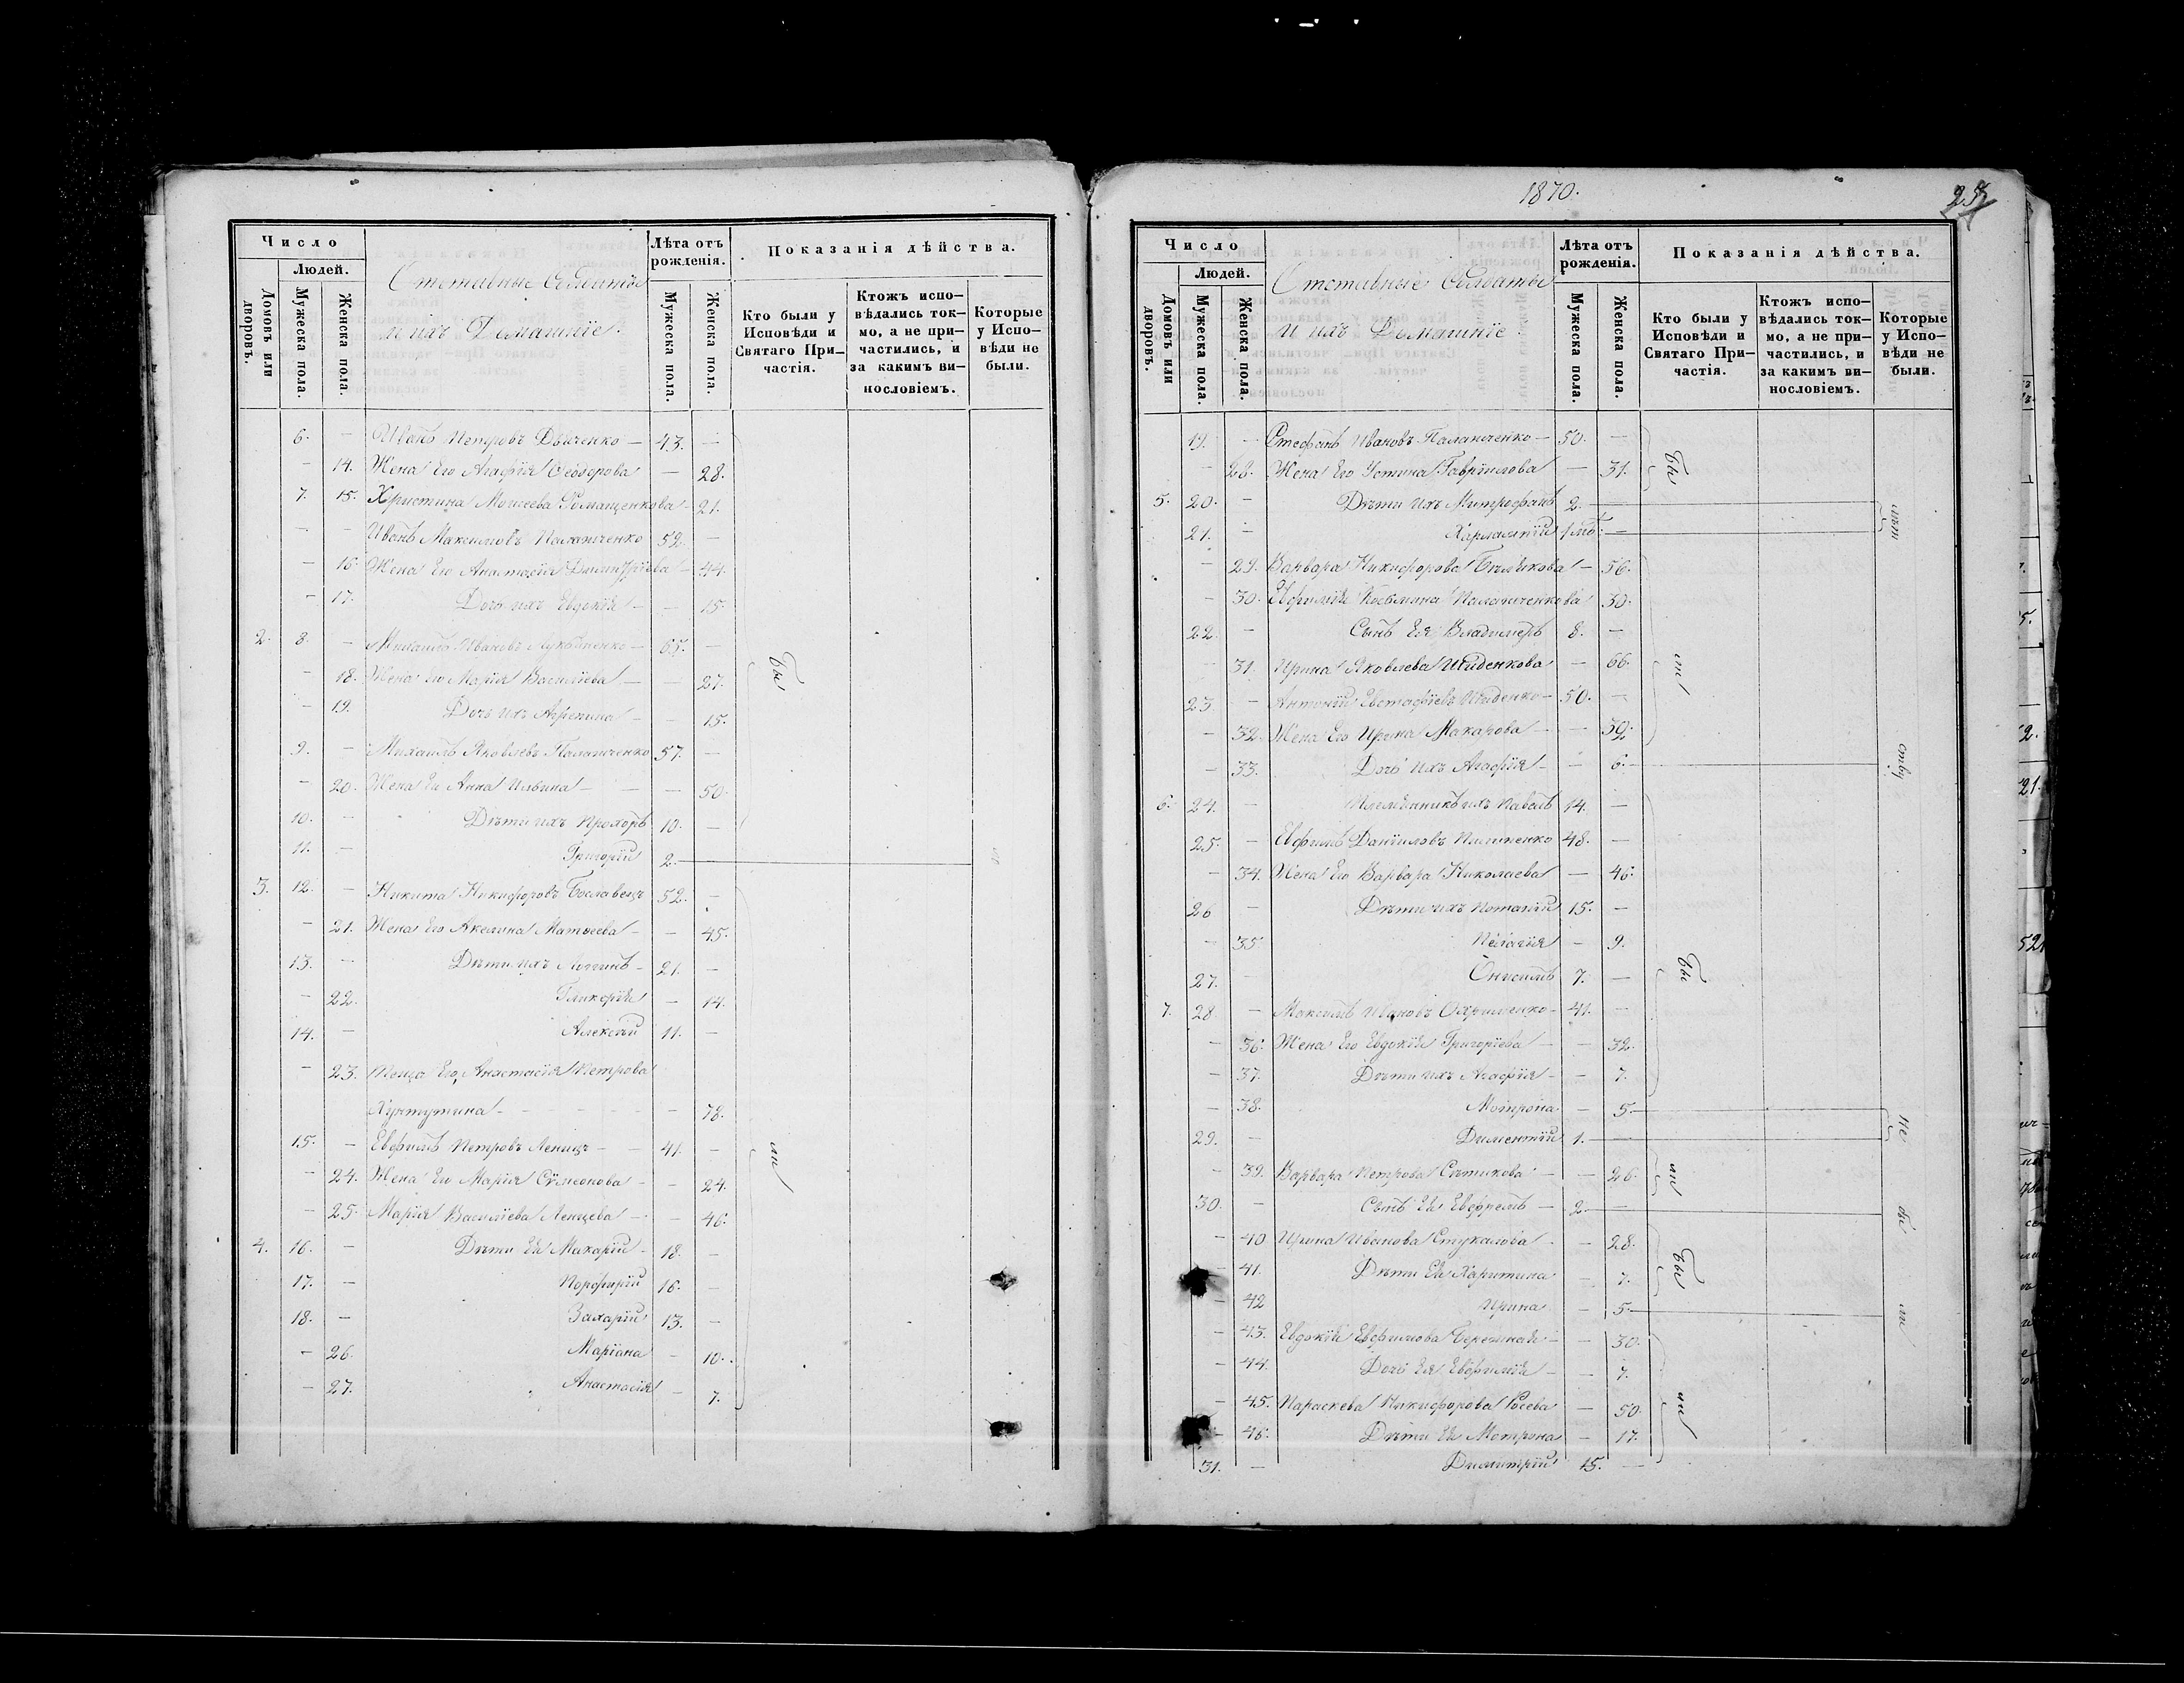 Число
Людей.
Домовъ или дворовъ.
Мужеска пола.
Женска пола.
Отставные Солдаты
и ихъ Домашніе.
Лѣта отъ рожденія.
Мужеска пола.
Женска пола.
Показанія дѣйства.
Кто были у Исповѣди и Святаго Причастія.
Ктожъ исповѣдались токмо, а не причастились, и за какимъ винословіемъ.
Которые у Исповѣди не были.
6. — Иванъ Петровъ — 43. —
— 14. Жена Его Агафія Ѳеодорова — 28.
7. 15. Христина Моисеева Романценкова — 21.
— — Иванъ Максимовъ Палагиченко 52. —
— 16. Жена Его Анастасія Димитріева — 44.
— 17. Дочь ихъ Евдокія — — 15.
2. 8. — Михаилъ Ивановъ — 65. —
— 18. Жена Его Марія Василіева — — 27.
— 19. Дочь ихъ Агрепина — — 15.
9. — Михаилъ Яковлевъ Палагиченко 57. —
— 20. Жена Ег Анна Ильина — — — 50.
10. — Дѣти ихъ Прохоръ 10. —
11. — Григорій 2.
3. 12. — Никита Никифоровъ Богславецъ 52. —
— 21. Жена Его Акелина Матѳеева — — 45.
13. — Дѣти ихъ Логгинъ — 21. —
— 22. Гликерія — 14.
14. — Алексѣй 11. —
— 23. Теща Его, Анастасія Петрова
Хунтутина — — — — 78.
15. — Евфимъ Петровъ Ленецъ — — 41. —
— 24. Жена Его Марія Сѵмеонова — — 24.
— 25. Марія Василіева Ленцева — — 46.
4. 16. — Дѣти Ея Макарій — 18. —
17. — Порфирій 16. —
18. — Захарій 13. —
— 26. Маріана — 10.
— 27. Анастасія — 7.
Бы
ли
1870.
Число
Людей.
Домовъ или дворовъ.
Мужеска пола.
Женска пола.
Отставные Солдаты
и ихъ Домашніе
Лѣта отъ рожденія.
Мужеска пола.
Женска пола.
Показанія дѣйства.
Кто были у Исповѣди и Святаго Причастія.
Ктожъ исповѣдались токмо, а не причастились, и за какимъ винословіемъ.
Которые у Исповѣди не были.
19. — Стефанъ Ивановъ Палагиченко — 50. —
— 28. Жена Его Устина Гавріилова — 31.
5. 20. — Дѣти ихъ Митрофанъ 2. —
21. — Харлампій 1 мѣ. —
— 29. Варвара Никифорова Бѣликова — 56.
— 30. Евфимія Косьмина Палагиченкова 30.
22. — Сынъ Ея Владимеръ 8. —
— 31. Ирина Яковлева Шиденкова — 66.
23. — Антоній Евстафіевъ Шиденко — 50. —
— 32. Жена Его Ирина Макарова — — 39.
— 33. Дочь ихъ Агафія — — 6.
6. 24. — Племѣнникъ ихъ Павелъ 14. —
25. — Евфимъ Даніиловъ Пилипенко 48. —
— 34. Жена Его Варвара Николаева — 46.
26 — Дѣти ихъ Потапій 15. —
— 35. Пелагія — 9.
27. — Онисимъ 7. —
7. 28. — Максимъ Ивановъ Охрименко — 41. —
— 36. Жена Его Евдокія Григоріева — — 32.
— 37. Дѣти ихъ Агафія — — 7.
— 38. Мотрона — 5.
29. — Диментій 1. —
— 39. Варвара Петрова Сѣтикова — — 26.
30. — Сынъ Ея Евфремъ — 2. —
— 40 Ирина Иванова Стукалова — — 28.
— 41. Дѣти Ея Харитина — 7.
— 42 Ирина — 5.
— 43. Евдокія Евфимова Беремная — — 30.
— 44. Дочь Ея Евфимія — — 7.
— 45. Параскева Никифорова Росева — 50.
— 46. Дѣти Ея Мотрона — 17.
31. — Димитрій 15. —
Бы
ли
Бы
ли
Бы
ли
не
бы
ли